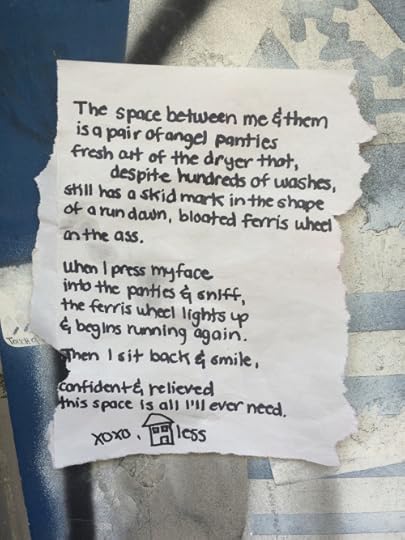 The space between me & them
is a pair of angel panties
fresh out of the dryer that,
despite hundreds of washes,
still has a skid mark in the shape
of a run down, bloated ferris wheel
on the ass.
When I press my face
into the panties & sniff,
the ferris wheel lights up
& begins running again.
Then I sit back & smile,
confident & relieved
this space is all I'll ever need.
xoxo, less